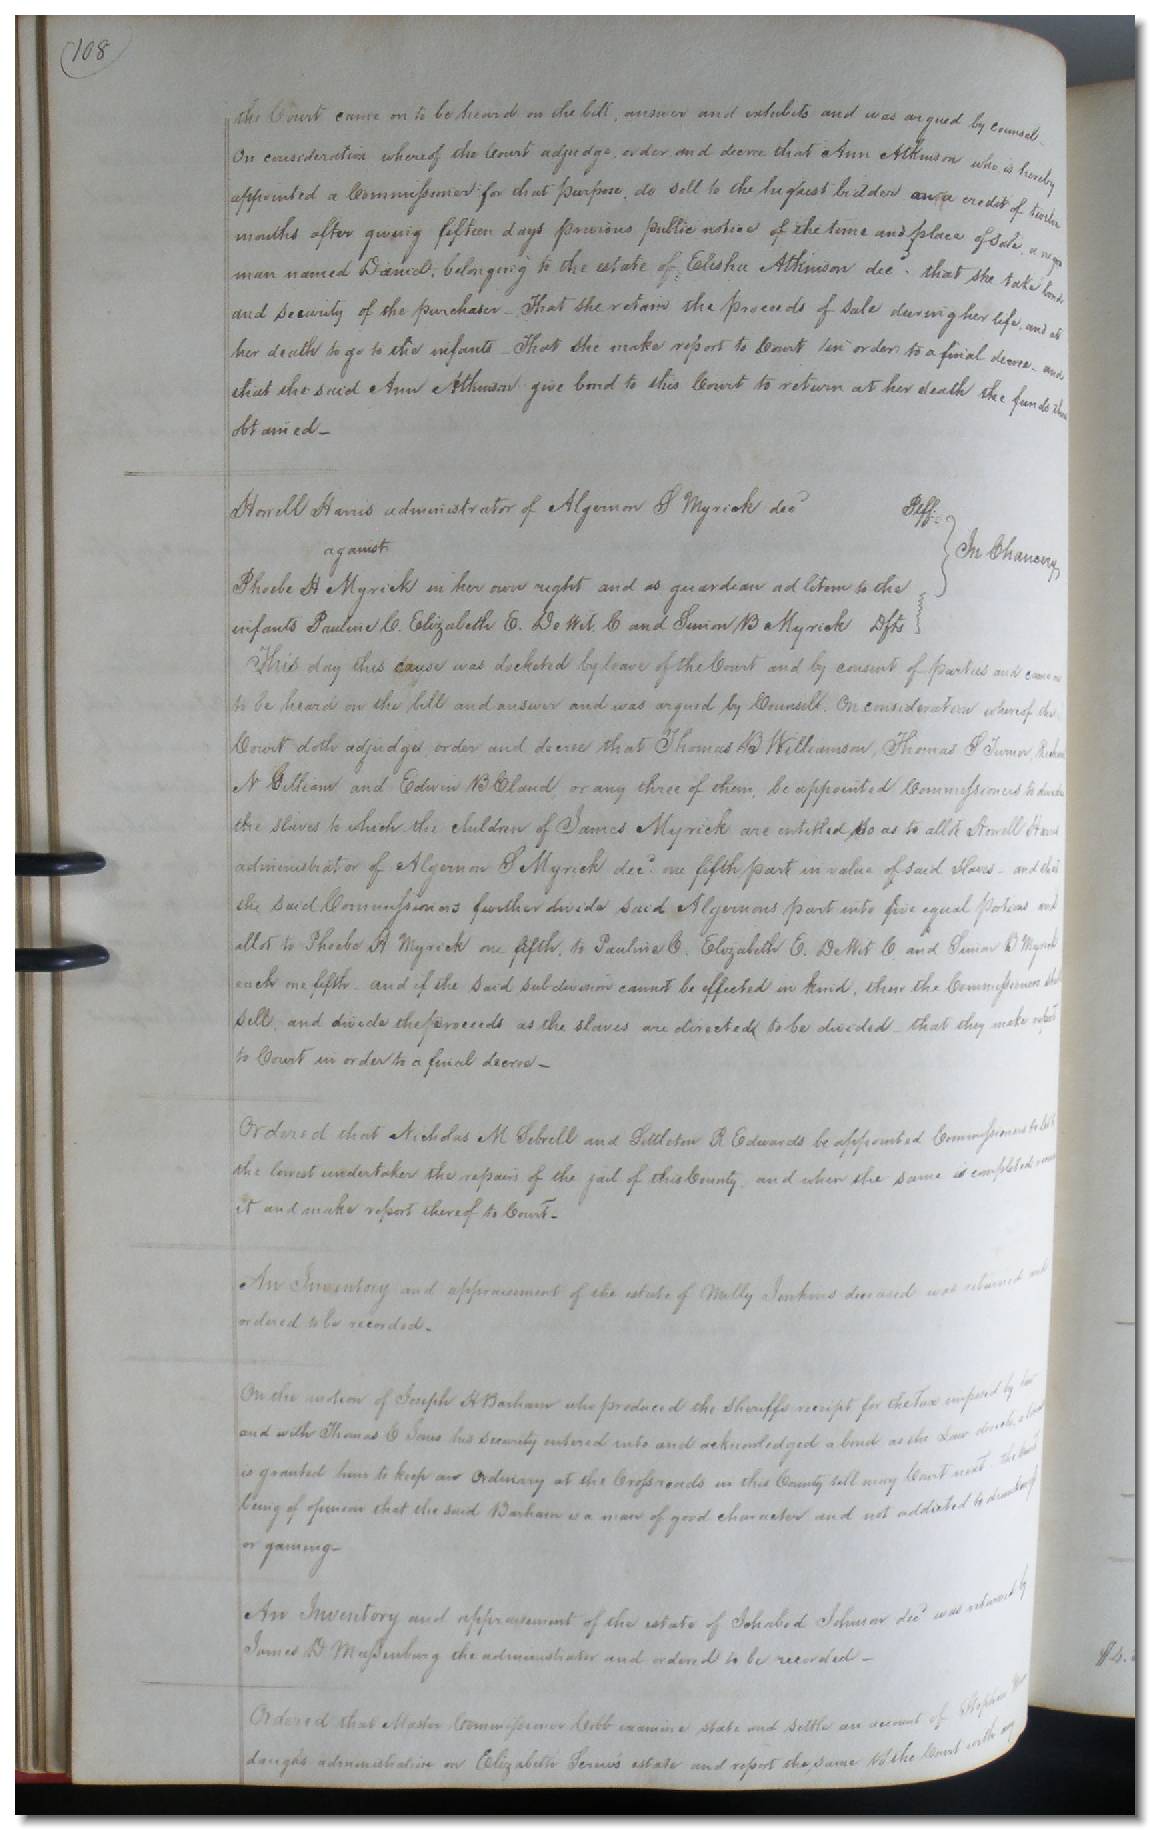 108
the Court came on to be heard on the bill, answer and exhibits and was argued by counsel.
On consideration whereof the Court adjudge, order and decree that Ann Atkinson who is hereby
appointed a Commissioner for that purpose, do sell to the highest bidder on a credit of twelve
months after giving fifteen days previous public notice of the time and place of sale, a negro
man named Daniel, belonging to the estate of Elisha Atkinson decd. that she take bond
and security of the purchaser - That she retain the proceeds of sale during her life, and at
her death to go to the infants - That she make report to Court in order to a final decree - and
that the said Ann Atkinson give bond to this Court to return at her death the funds thus
obtained -
Howell Harris administrator of Algernon S Myrick decd Plff.
against
In Chancery
Phoebe H Myrick in her own right and as guardian ad litem to the
infants Pauline C. Elizabeth E. DeWit. C and Simon B Myrick Dfts
This day this cause was docketed by leave of the Court and by consent of parties and came on
to be heard on the bill and answer and was argued by Counsell. On consideration whereof the
Court doth adjudge, order and decree that Thomas B Williamson, Thomas S Turner,
N Gilliam and Edwin B Claud, or any three of them, be appointed Commissioners to divide
the slaves to which the children of James Myrick are entitled so as to allot Howell Harris
administrator of Algernon S Myrick decd. one fifth part in value of said slaves - and that
the said Commissioners further divide said Algernons part into five equal portions and
allot to Phoebe H Myrick one fifth, to Pauline C. Elizabeth E. DeWit C and Simon B Myrick
each one fifth - and if the said subdivision cannot be effected in kind, then the Commissioners shall
sell, and divide the proceeds as the slaves are directed to be divided - that they make report
to Court in order to a final decree -
Ordered that Nicholas M Sebrell and Littleton R Edwards be appointed Commissioners to let to
the lowest undertaker the repairs of the jail of this County, and when the same is completed
it and make report thereof to Court -
An Inventory and appraisement of the estate of Milly Jenkins deceased was returned and
ordered to be recorded -
On the motion of Joseph H Barham who produced the Sheriffs receipt for the tax imposed by law
and with Thomas E Jones his security entered into and acknowledged a bond as the Law directs, a
is granted him to keep an Ordinary at the Crossroads in this County till may Court next the Court
being of opinion that the said Barham is a man of good character and not addicted to drunkenness
or gaming -
An Inventory and appraisement of the estate of Ichabod Johnson decd was returned by
James D Massenburg the administrator and ordered to be recorded -
Ordered that Master Commissioner Cobb examine state and settle an account of Stephen
daughs administration on Elizabeth estate and report the same to the Court with any
$5.